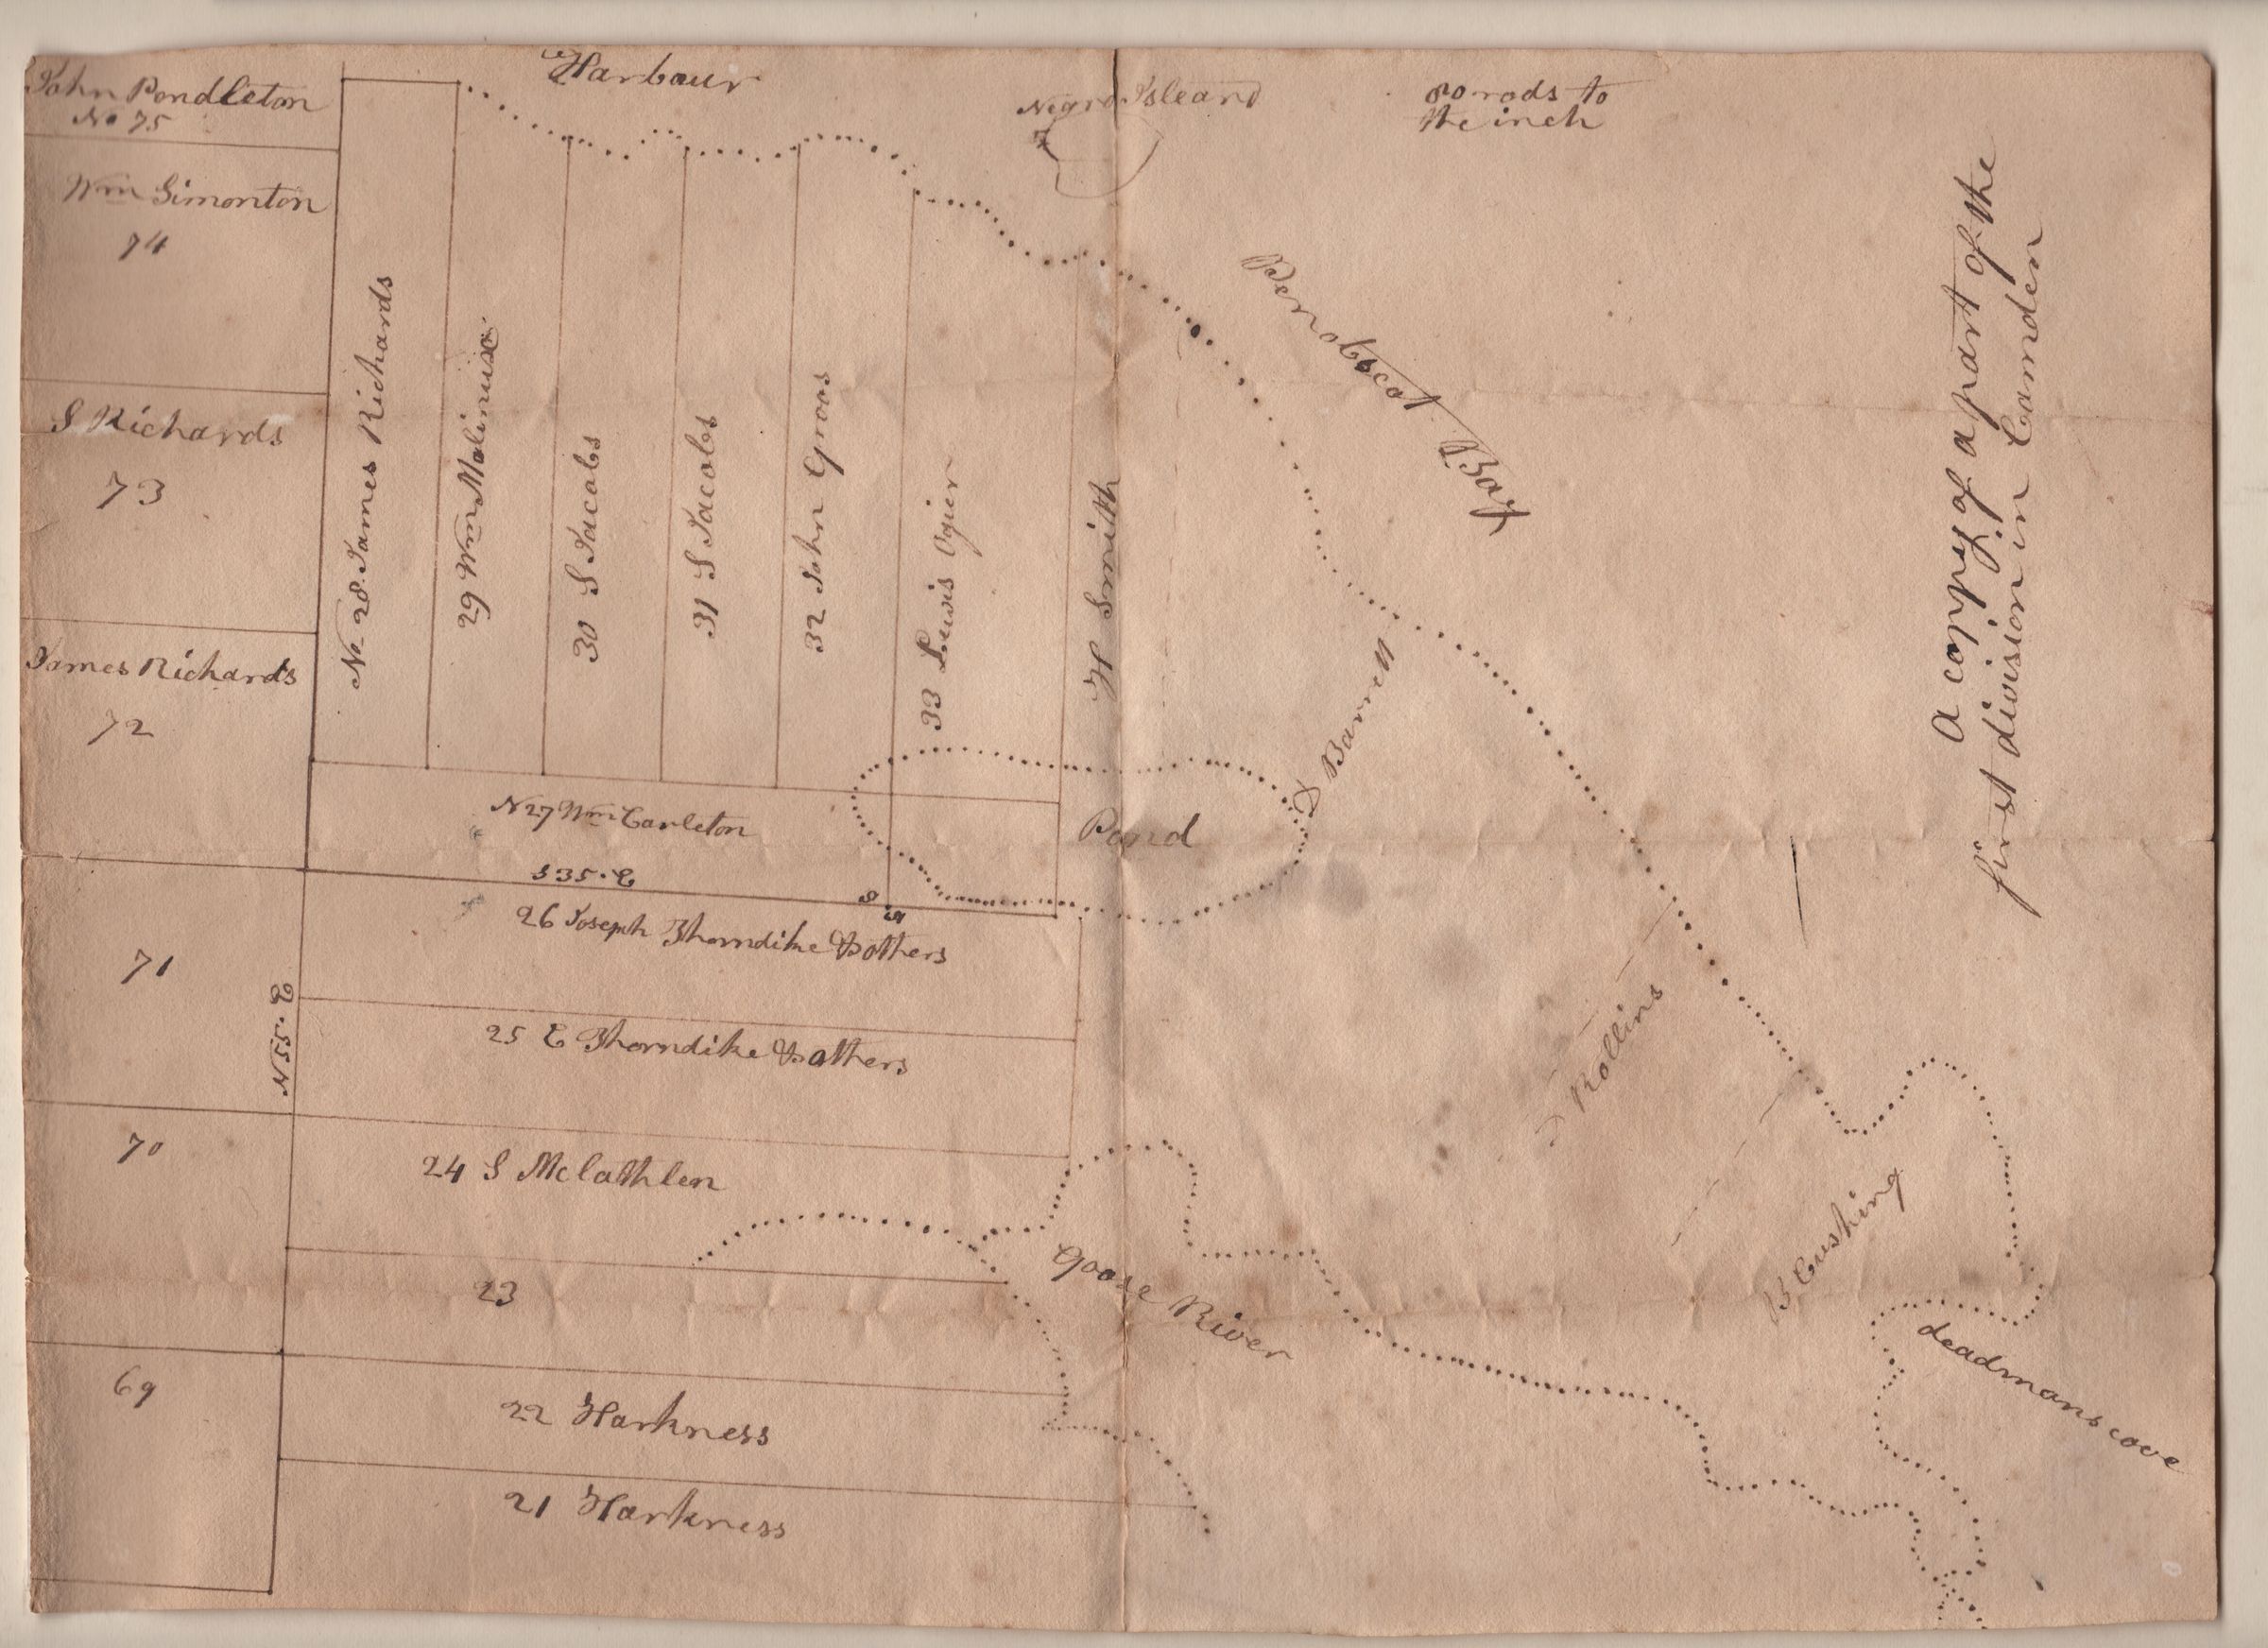 Harbour
John Pendleton
No 75
Negro Isleand
80 rods to
the inch
Wm Simonton
74
S Richards
73
James Richards
72
No 28 James Richards
29 Wm Molinuix
30 S Jacobs
31 S Jacobs
32 John Groos
33 Lewis Ogier
H Smith
Penobscot Bay
A coppy of a part of the
first division in Camden
Barrett
N 27 Wm Carleton
Pond
S 35 . E
26 Joseph Thorndike & others
71
N 55 . E
25 E Thorndike & others
Rollins
70
24 S Mclathlen
B Cushing
23
Goose River
deadmans cove
69
22 Harkness
21 Harkness